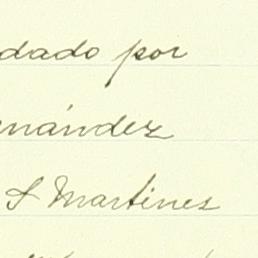 dado por
ernández
S Martines